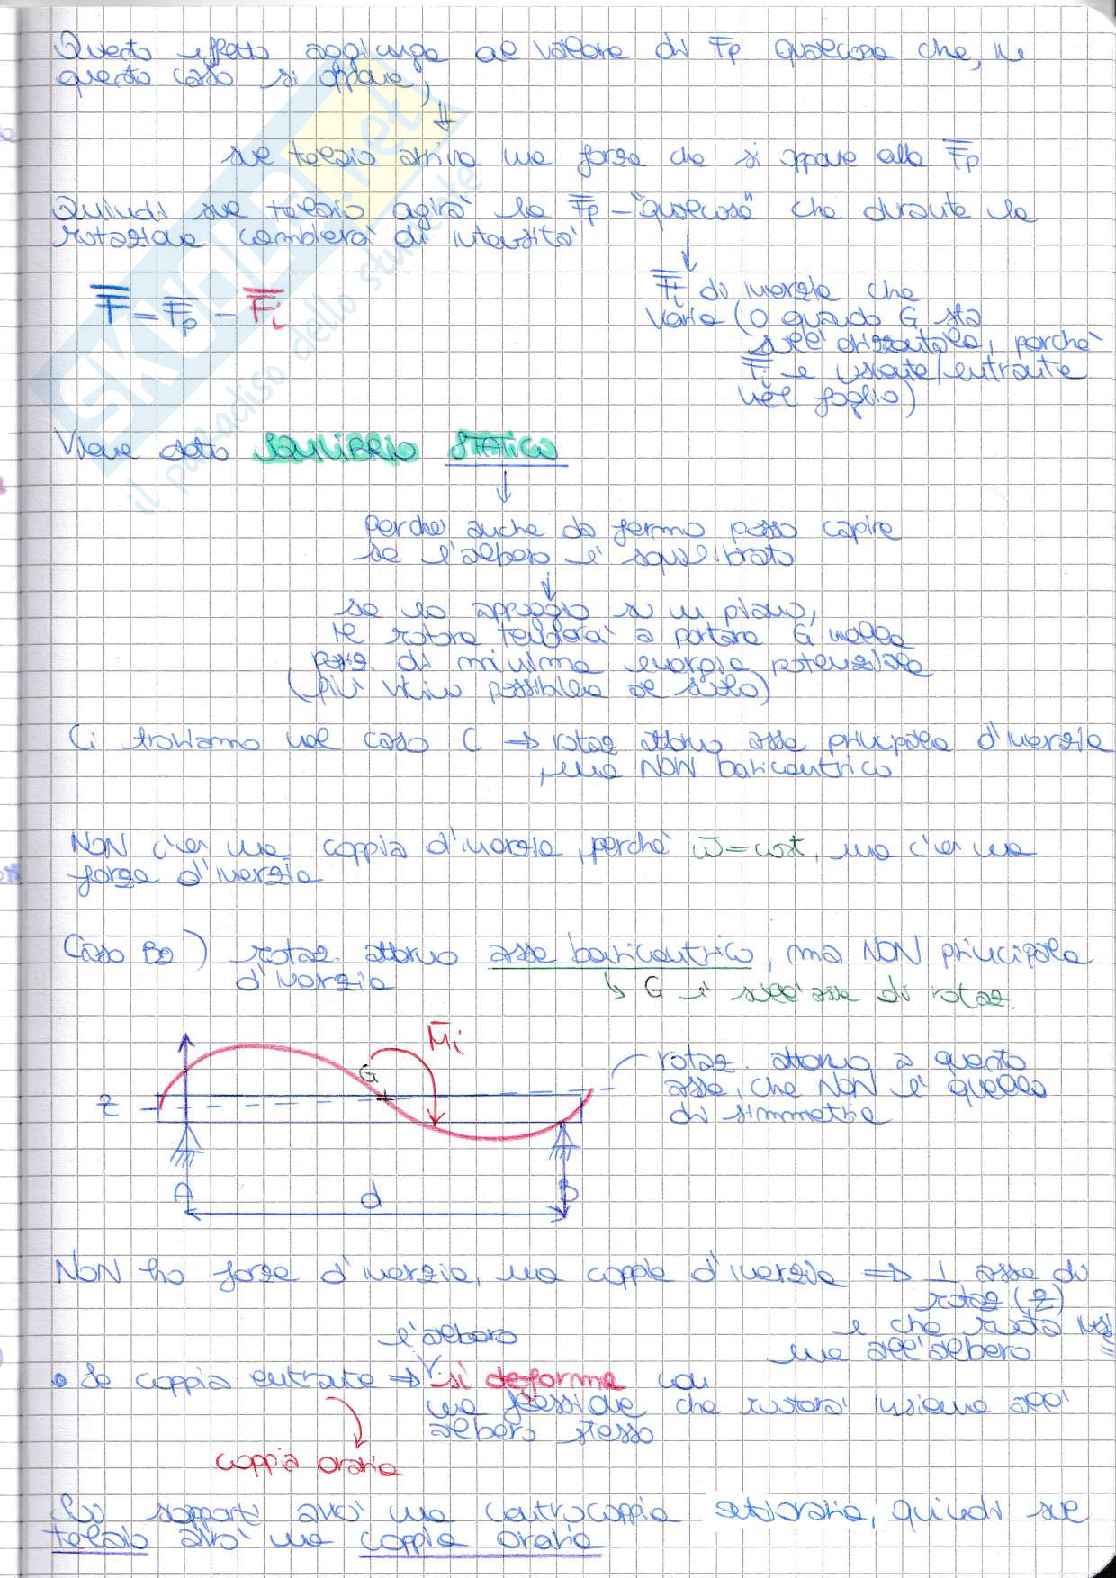 Questo effetto aggiunge al valore di Fp qualcosa che, in
questo caso si oppone,
⇓
sul telaio arriva una forza che si oppone alla Fp
Quindi sul telaio agirà la Fp - "qualcosa" che durante la
rotazione cambierà di intensità
↓
F = Fp - Fi
Fi di inerzia che
varia (0 quando G sta
sull'orizzontale, perché
Fi è uscente/entrante
nel foglio)
Viene detto EQUILIBRIO STATICO
↓
perché anche da fermo posso capire
se l'albero è squilibrato
↓
se lo appoggio su un piano,
il rotore tenderà a portare G nella
posiz. di minima energia potenziale
(più vicino possibile al suolo)
Ci troviamo nel caso C ⇒ rotaz attorno asse principale d'inerzia
, ma NON baricentrico
NON c'è una coppia d'inerzia, perché ω = cost, ma c'è una
forza d'inerzia
Caso B2) rotaz. attorno asse baricentrico, ma NON principale
d'inerzia
↳ G è sull'asse di rotaz.
Mi
G
z
rotaz. attorno a questo
asse, che NON è quello
di simmetria
A
d
B
NON ho forza d'inerzia, ma coppia d'inerzia ⇒ ⊥ asse di
rotaz (z)
e che ruota insie
me all'albero
l'albero
• Se coppia entrante ⇒ si deforma con
una flessione che ruoterà insieme all'
albero stesso
coppia oraria
Sui supporti avrò una controcoppia antioraria, quindi sul
telaio avrò una coppia oraria
SKUOLA.net
il paradiso dello studente